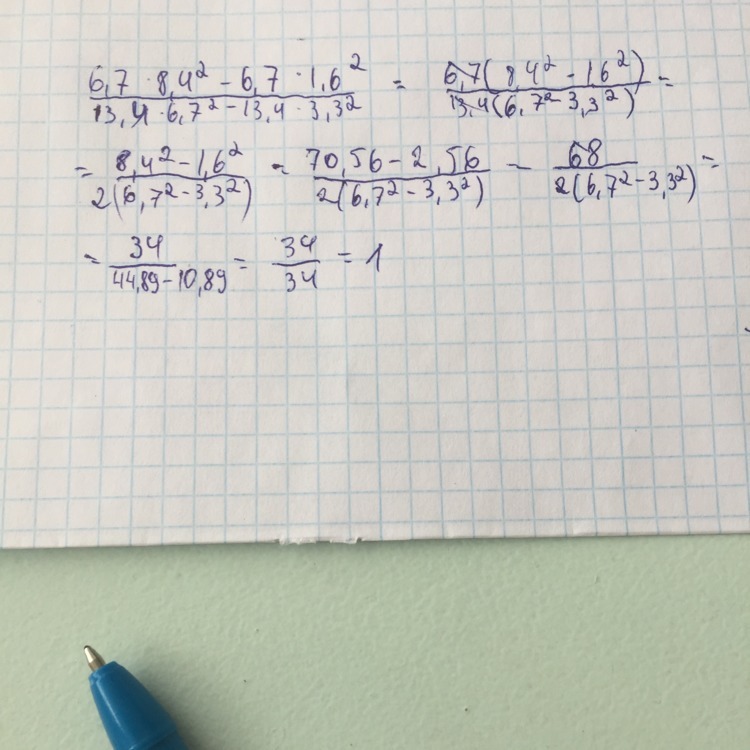 (6,7 · 8,4² − 6,7 · 1,6²)/(13,4 · 6,7² − 13,4 · 3,3²) = 6,7(84² − 16²)/13,4(6,7² − 3,3²) =
= (8,4² − 1,6²)/2(6,7² − 3,3²) = (70,56 − 2,56)/2(6,7² − 3,3²) − 68/2(6,7² − 3,3²) =
= 34/(44,89 − 10,89) = 34/34 = 1